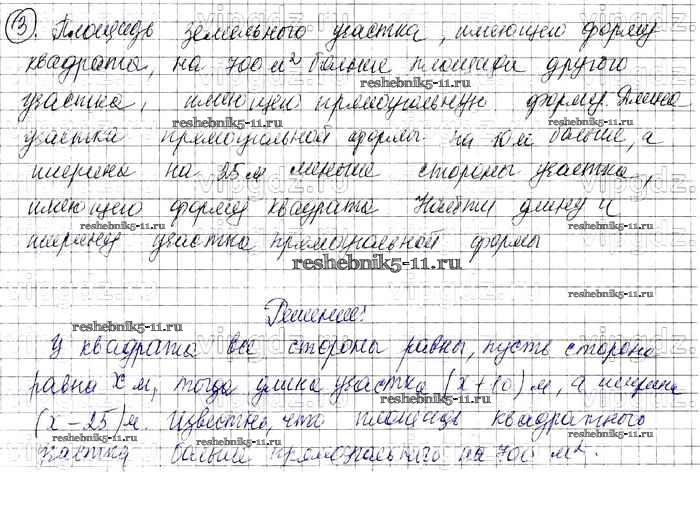 ③. Площадь земельного участка, имеющего форму
квадрата, на 700 м² больше площади другого
участка, имеющего прямоугольную форму. Длина
участка прямоугольной формы на 10 м больше, а
ширина на 25 м меньше стороны участка,
имеющего форму квадрата Найти длину и
ширину участка прямоугольной формы
reshebnik5-11.ru
Решение:
У квадрата все стороны равны, пусть сторона
равна x м, тогда длина участка (x+10) м, а ширина
(x-25) м. Известно, что площадь квадратного
участка больше прямоугольного на 700 м².